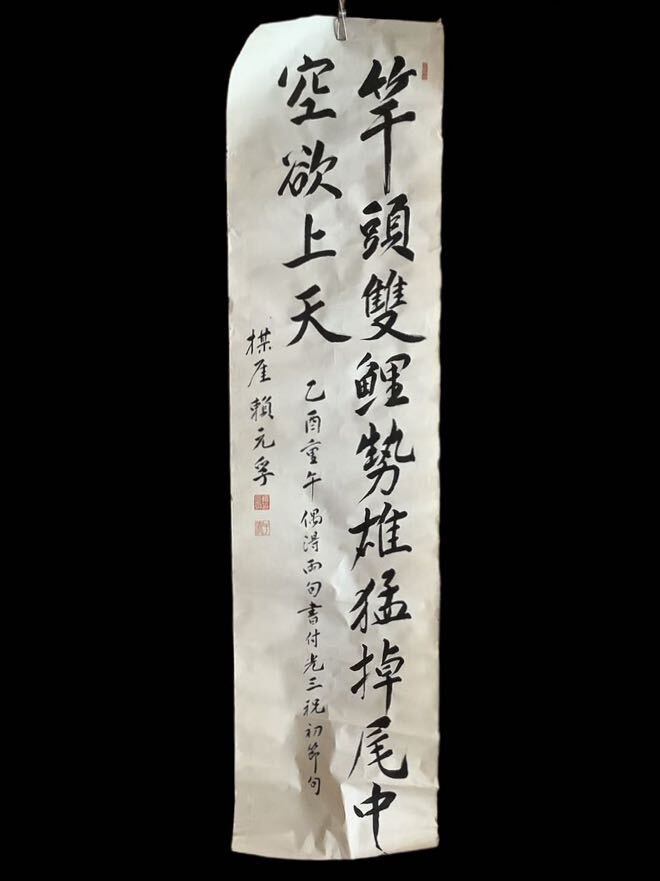 竿頭雙鯉勢雄猛掉尾中
空欲上天
乙酉重午偶得兩句書付光三祝初節句
楳厓賴元孚